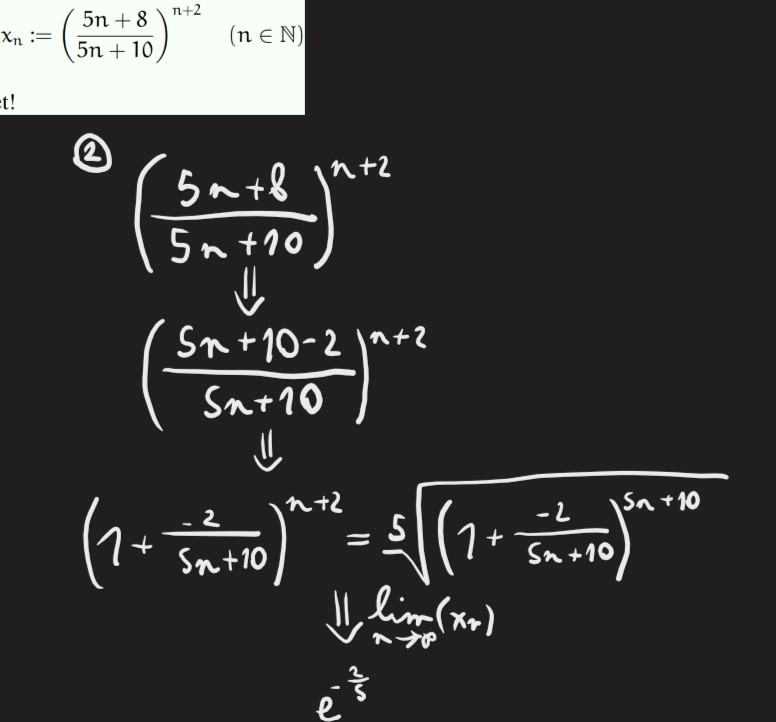 xₙ := ((5n + 8)/(5n + 10))^(n+2) (n ∈ ℕ)
et!
②
((5n+8)/(5n+10))^(n+2)
⇓
((5n+10-2)/(5n+10))^(n+2)
⇓
(1 + (-2)/(5n+10))^(n+2) = ⁵√((1 + (-2)/(5n+10))^(5n+10))
⇓ lim_(n→∞) (xₙ)
e^(-2/5)